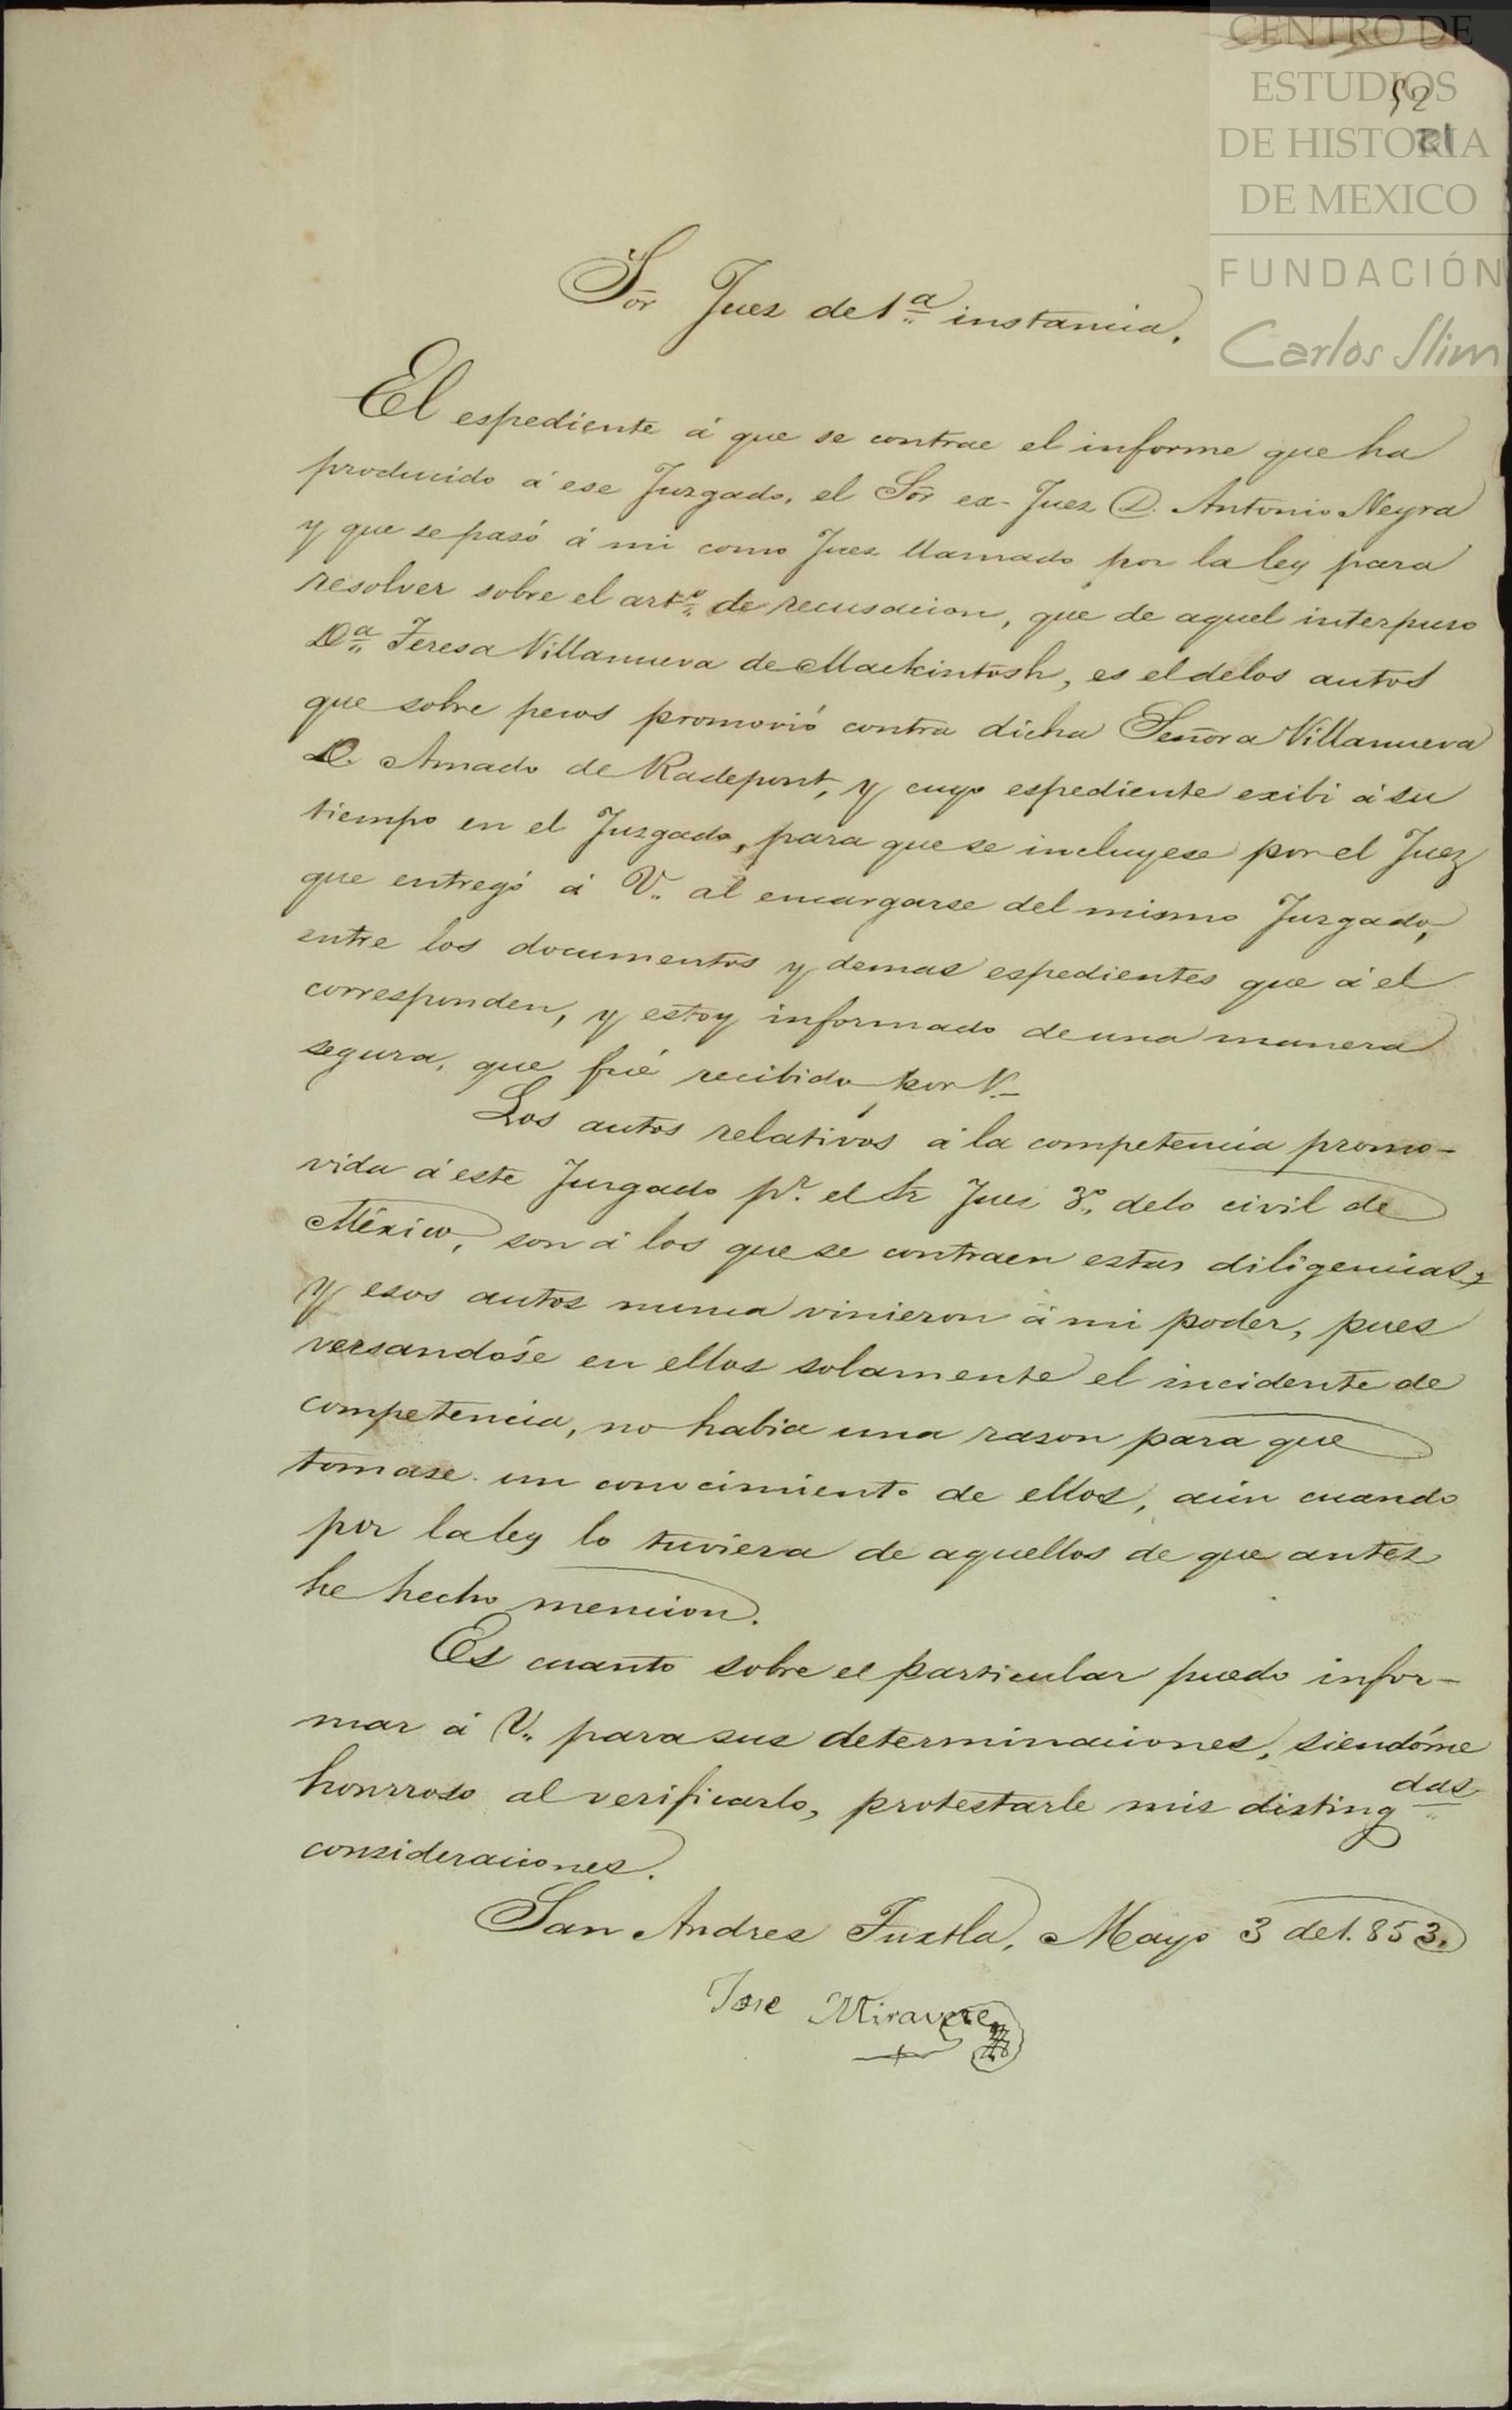 CENTRO DE
ESTUDIOS
DE HISTORIA
DE MEXICO
FUNDACIÓN
Carlos Slim
52
21
Sōr Juez de 1ª instancia.
El espediente á que se contrae el informe que ha
producido á ese Juzgado, el Sōr ex-Juez D. Antonio Neyra
y que se pasó á mi como Juez llamado por la ley para
resolver sobre el artº de recusacion, que de aquel interpuso
Dª Teresa Villanueva de Mackintosh, es el delos autos
que sobre pesos promovió contra dicha Señora Villanueva
D. Amado de Radepont, y cuyo espediente exibi á su
tiempo en el Juzgado, para que se incluyese por el Juez
que entregó á V. al encargarse del mismo Juzgado,
entre los documentos y demas espedientes que á el
corresponden, y estoy informado de una manera
segura, que fué recibido por V.
Los autos relativos á la competencia promo-
vida á este Juzgado pr. el Sr Juez 3º delo civil de
México, son á los que se contraen estas diligencias,
y esos autos nunca vinieron á mi poder, pues
versandóse en ellos solamente el incidente de
competencia, no habia una rason para que
tomase un conocimiento de ellos, aún cuando
por la ley lo tuviera de aquellos de que antes
he hecho mencion.
Es cuanto sobre el particular puedo infor-
mar á V. para sus determinaciones, siendóme
honrroso al verificarlo, protestarle mis distingdas
consideraciones.
San Andres Tuxtla, Mayo 3 de 1.853.
Jose Miravete